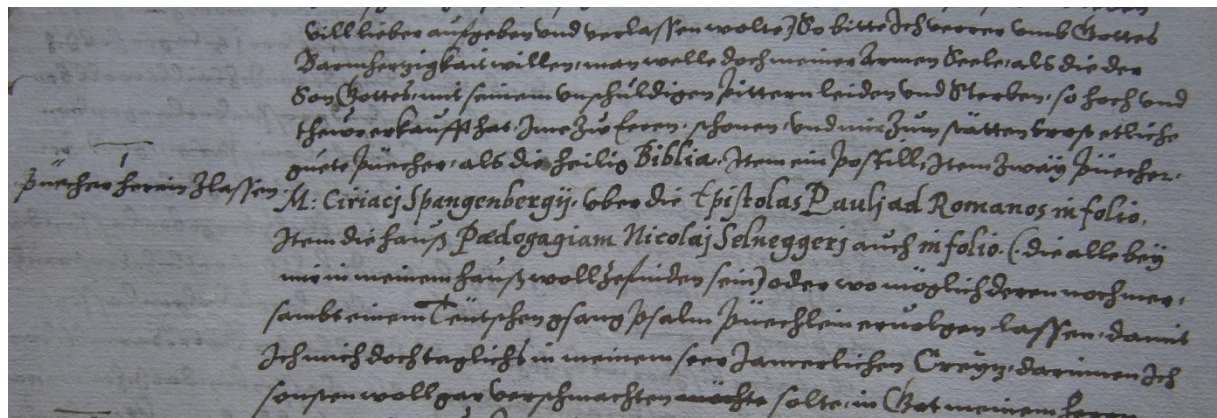 vill lieber aufgeben vnd verlassen wolte) So bitte Ich verrer vmb Gottes
Barmherzigkait willen, man welle doch meiner Armen Seele, als die der
Son Gottes, mit seinem vnschuldigen pittern leiden vnd Sterben, so hoch vnd
theur erkaufft hat, Ime zw Eeren, schonen, vnd mir zum stätten trost etliche
guete püecher, als die heilig Biblia, Item ein postill, Item zwäy püecher,
püecher herein zlassen
M: Ciriacj Spangenbergij, vber die Epistolas Paulj ad Romanos in folio,
Item die hauß Pædogagiam Nicolaj Selneggerj auch in folio (: die alle bey
mir in meinem hauß woll zefinden sein) oder wo möglich deren noch mer,
sambt einem Teütschen gsang psalm püechlein eruolgen lassen, damit
Ich mich doch taglichs in meinem seer Jamerlichen Creyz, darinnen Ich
sonsten woll gar verschmachten möchte solte, in Got meinem herrn